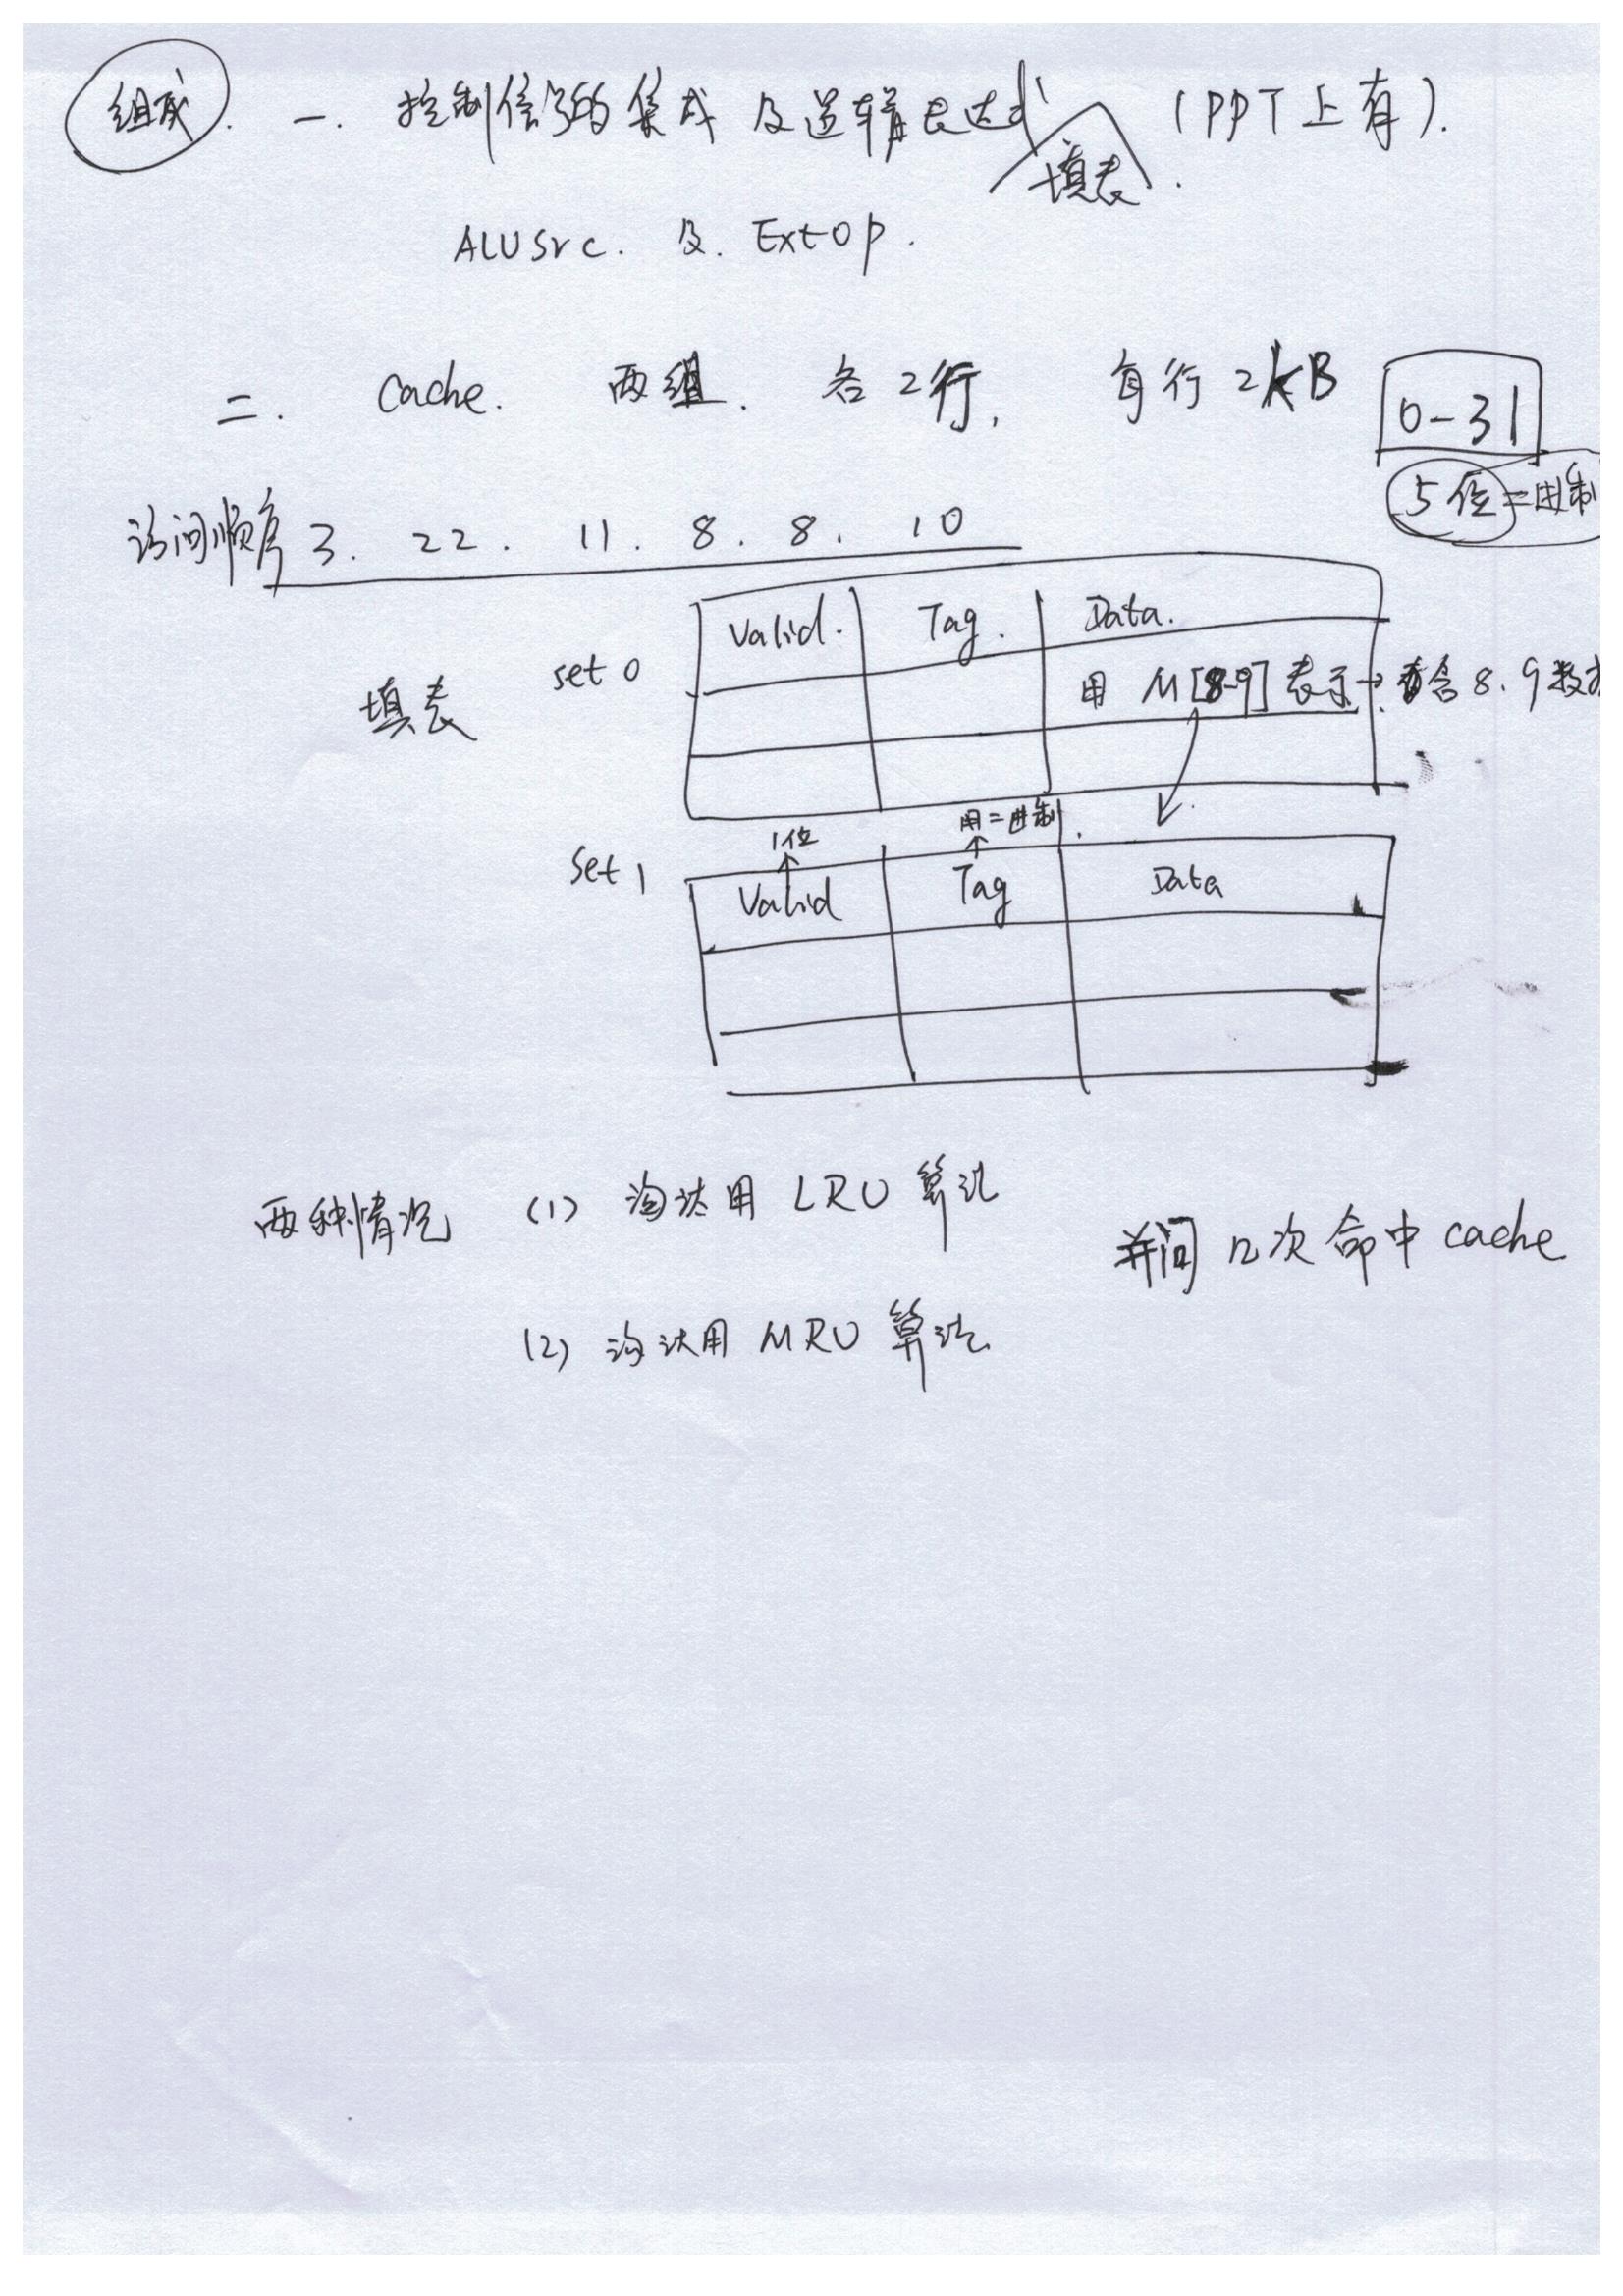 组成. 一. 控制信号的集成 及逻辑表达式 (PPT上有).
填表.
ALUSrc. 及. Extop.
二. Cache. 两组. 各2行, 每行2kB 0-31
5位二进制
访问顺序 3. 22. 11. 8. 8. 10
填表
set 0
Valid. Tag. Data.
用 M[8-9] 表示→ 含 8.9数
1位 用二进制.
Set 1
Valid Tag Data
两种情况 (1) 淘汰用 LRU 算法
并问 几次 命中 cache
(2) 淘汰用 MRU 算法